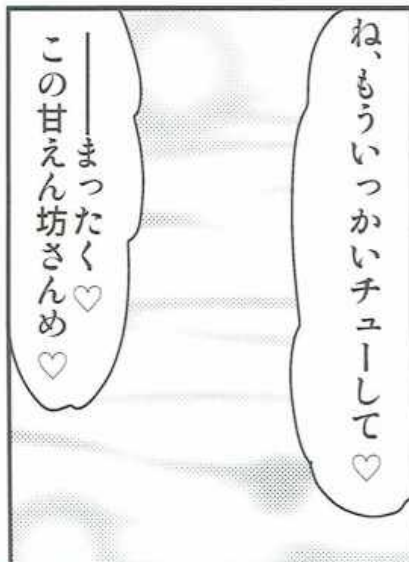 ね、もういっかいチューして♡
――まったく♡
この甘えん坊さんめ♡